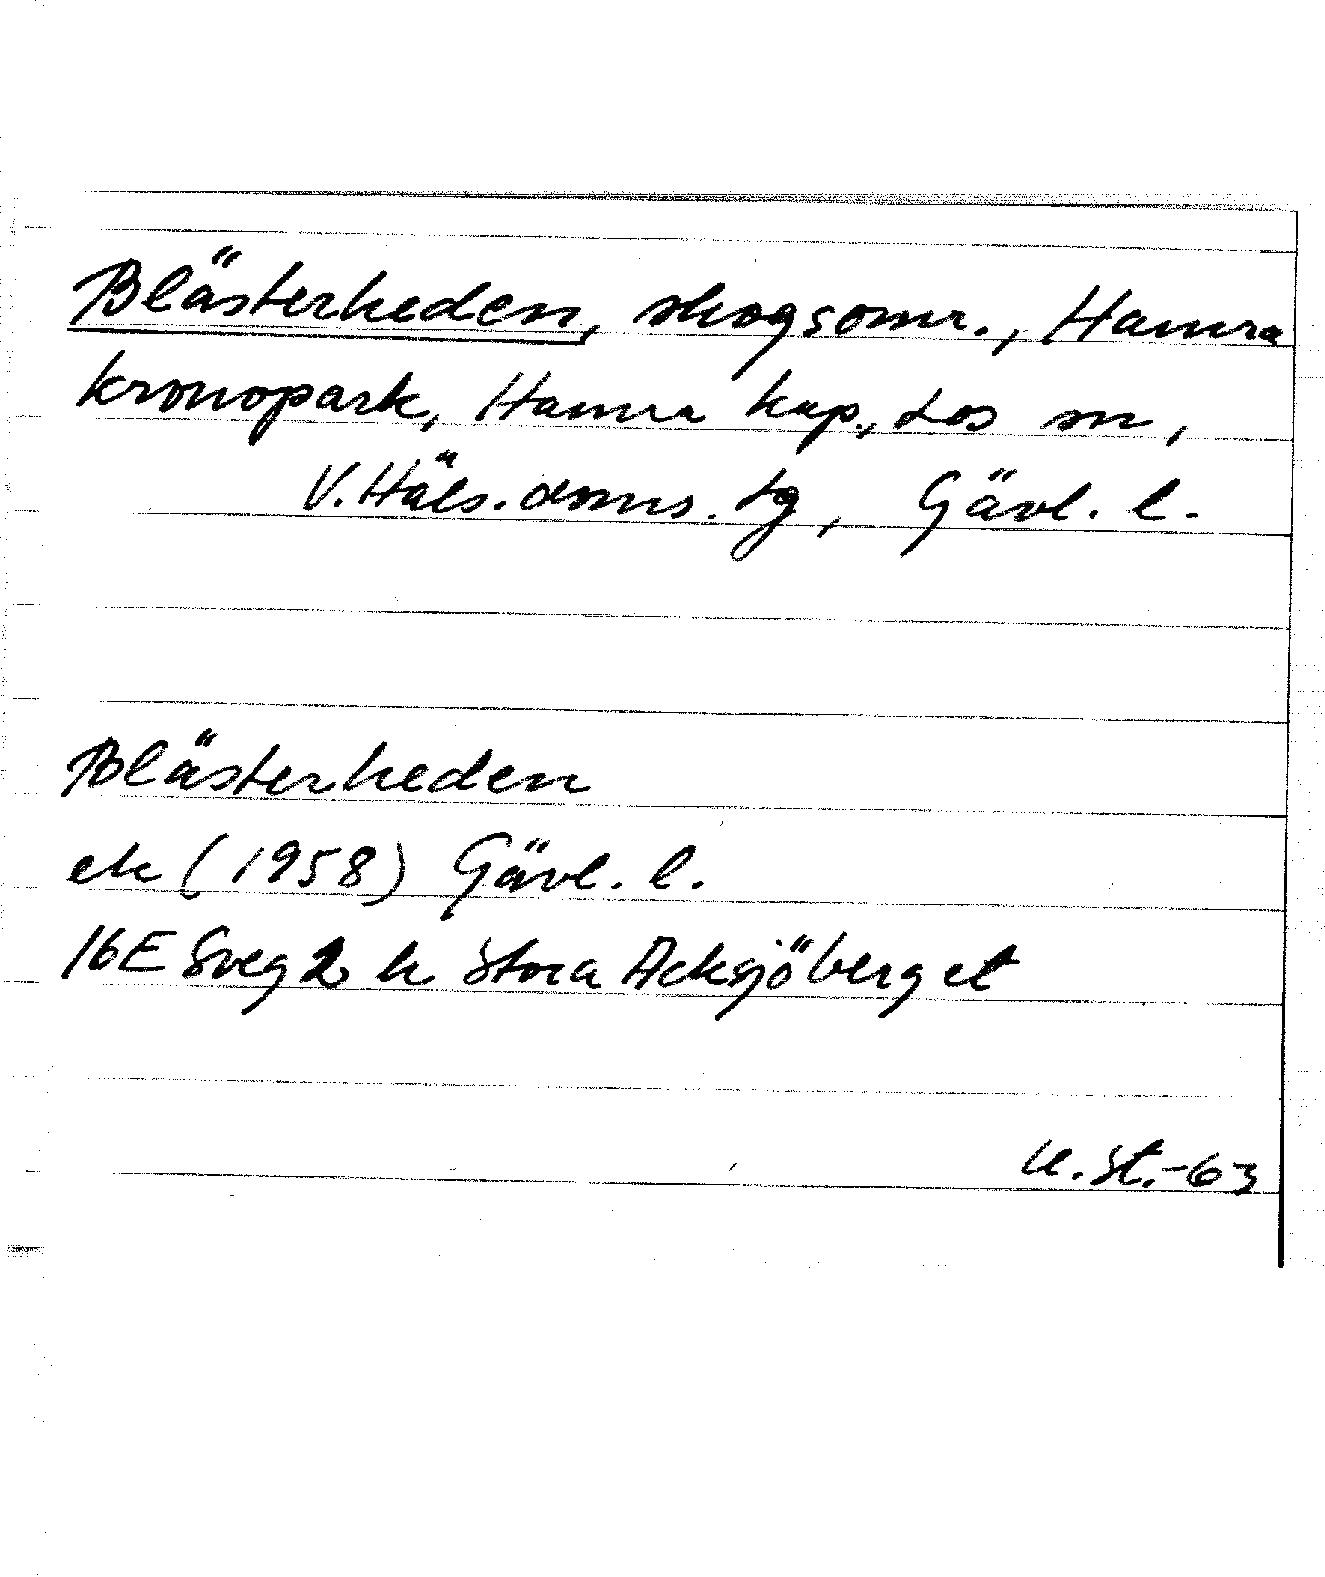 Blästerheden, skogsomr., Hamra
kronopark, Hamra kap., Los sn,
V. Häls. doms. tg, Gävl. l.
Blästerheden
ek (1958) Gävl. l.
16E Sveg 2 h Stora Acksjöberget
U. St. -63